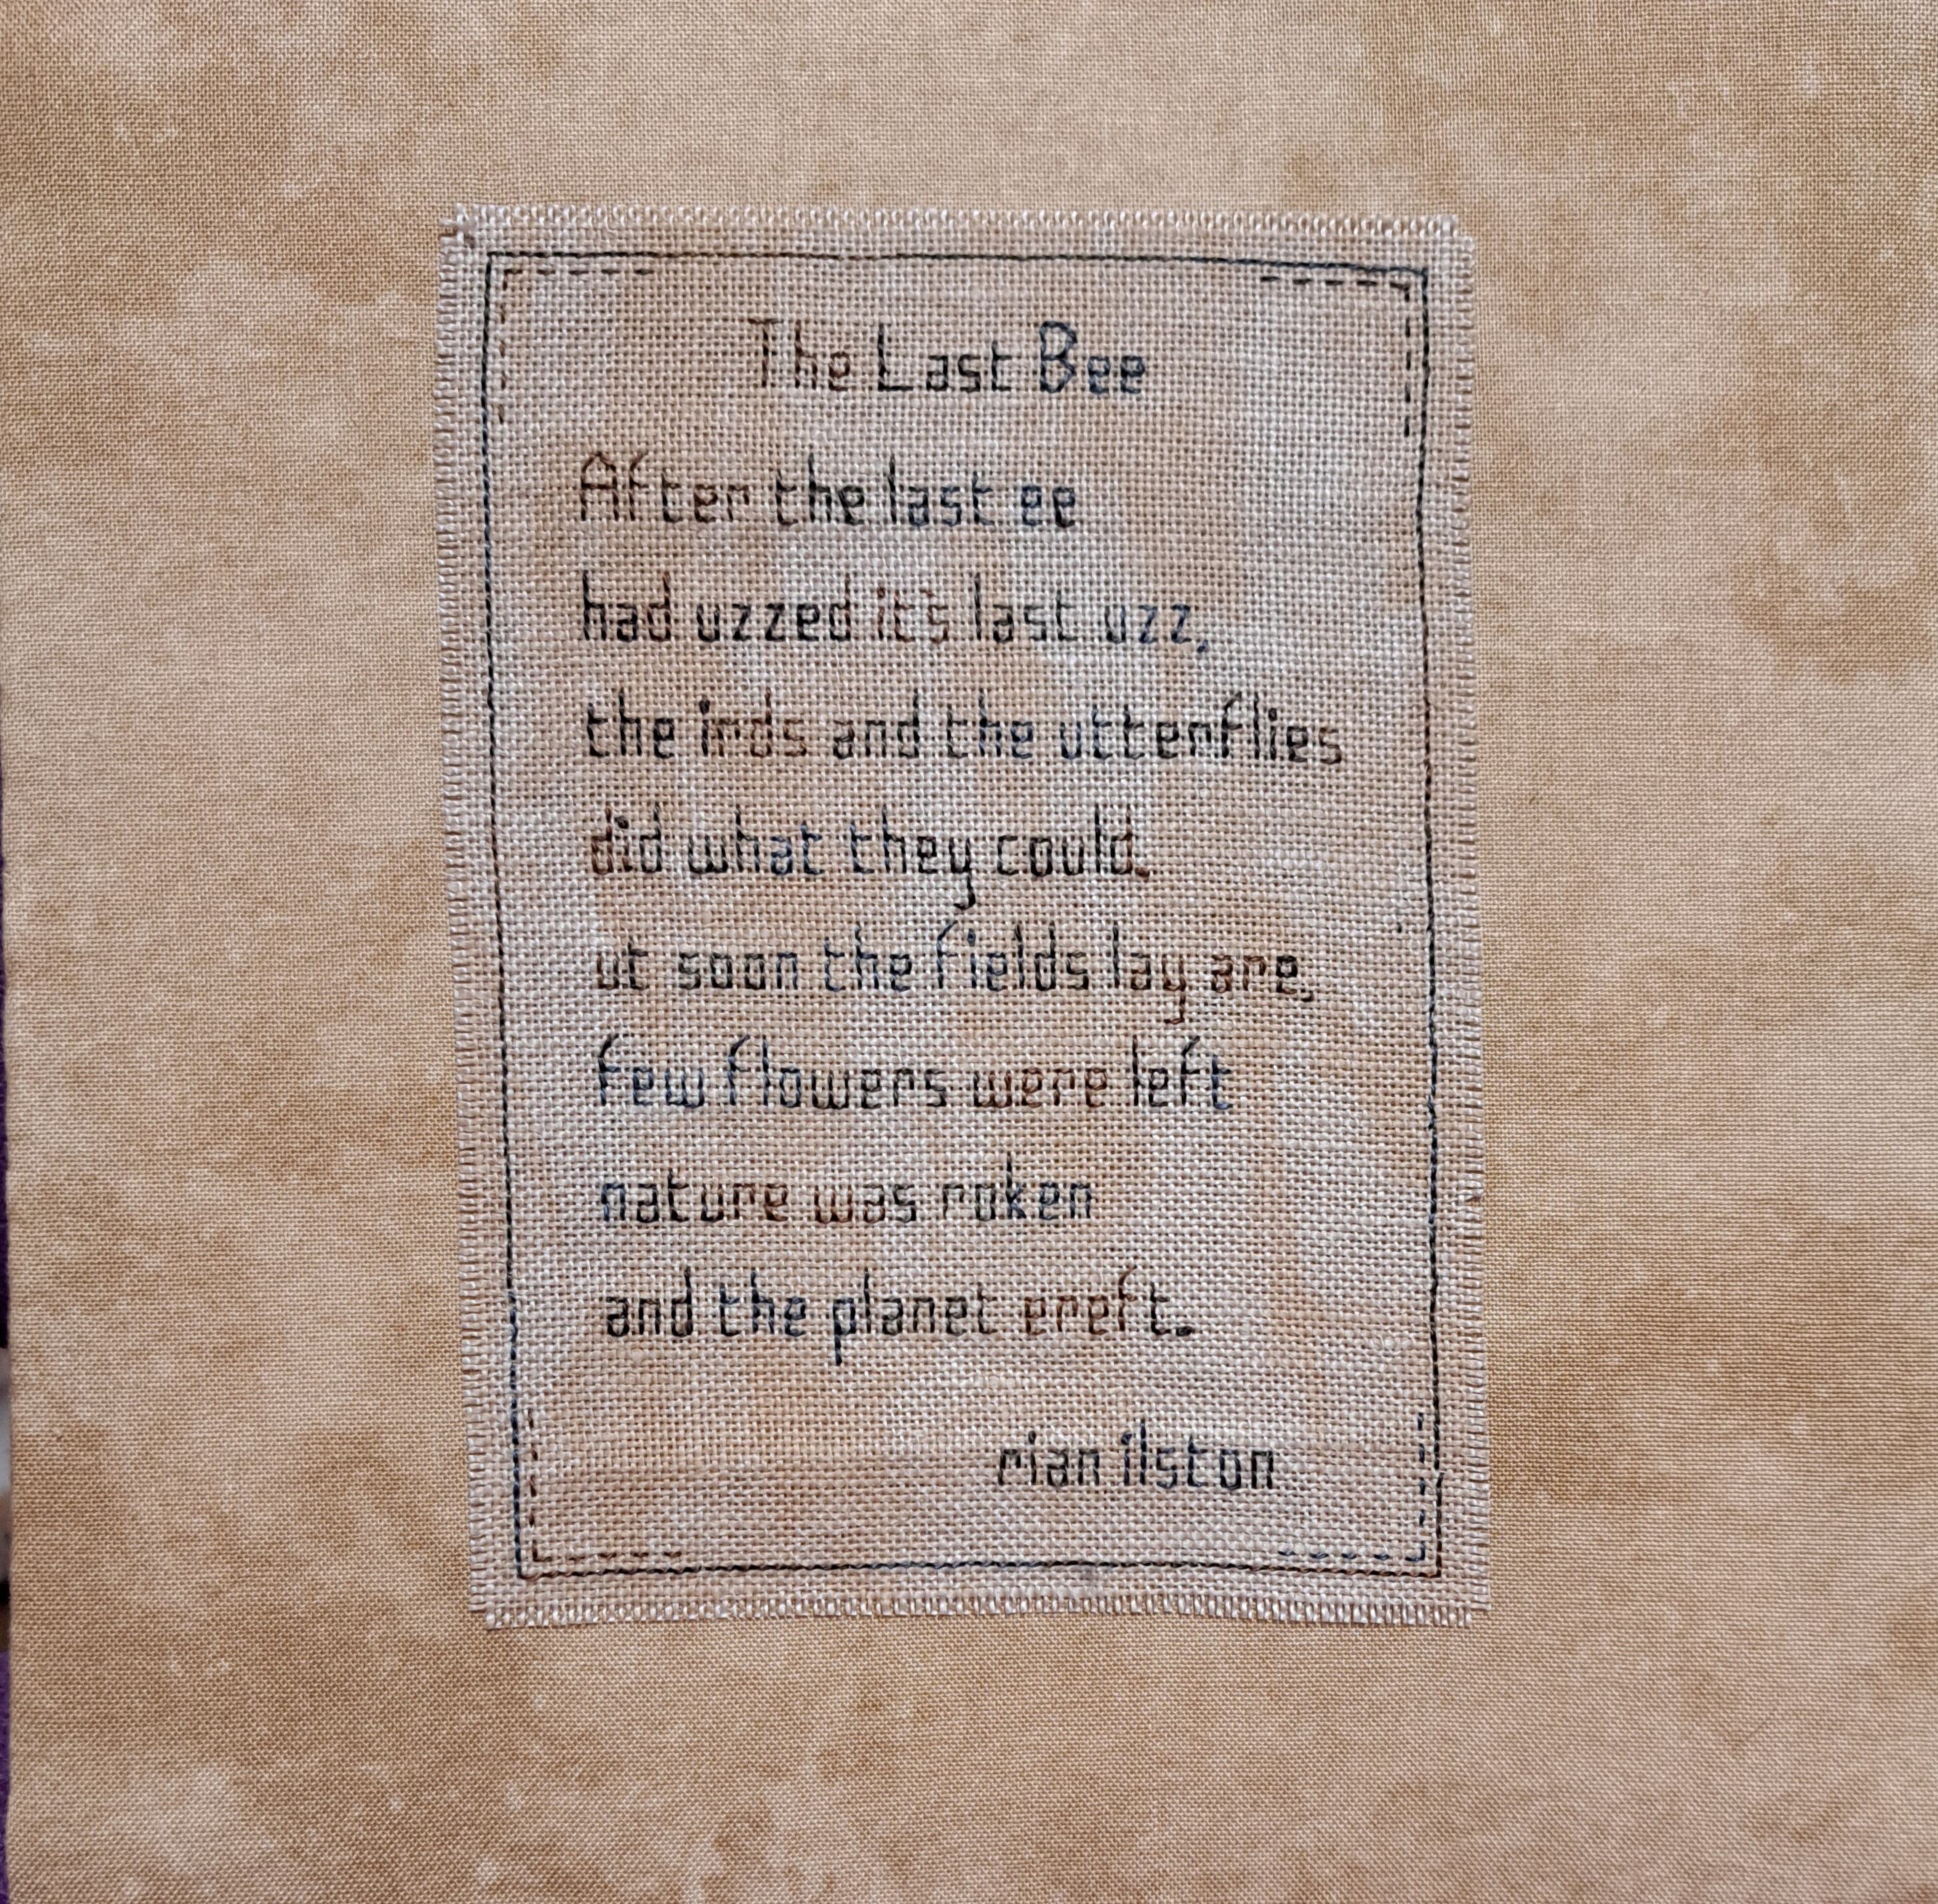 The Last Bee
After the last ee
had uzzed it's last uzz,
the irds and the utterflies
did what they could.
ut soon the fields lay are,
few flowers were left
nature was roken
and the planet ereft.
rian ilston